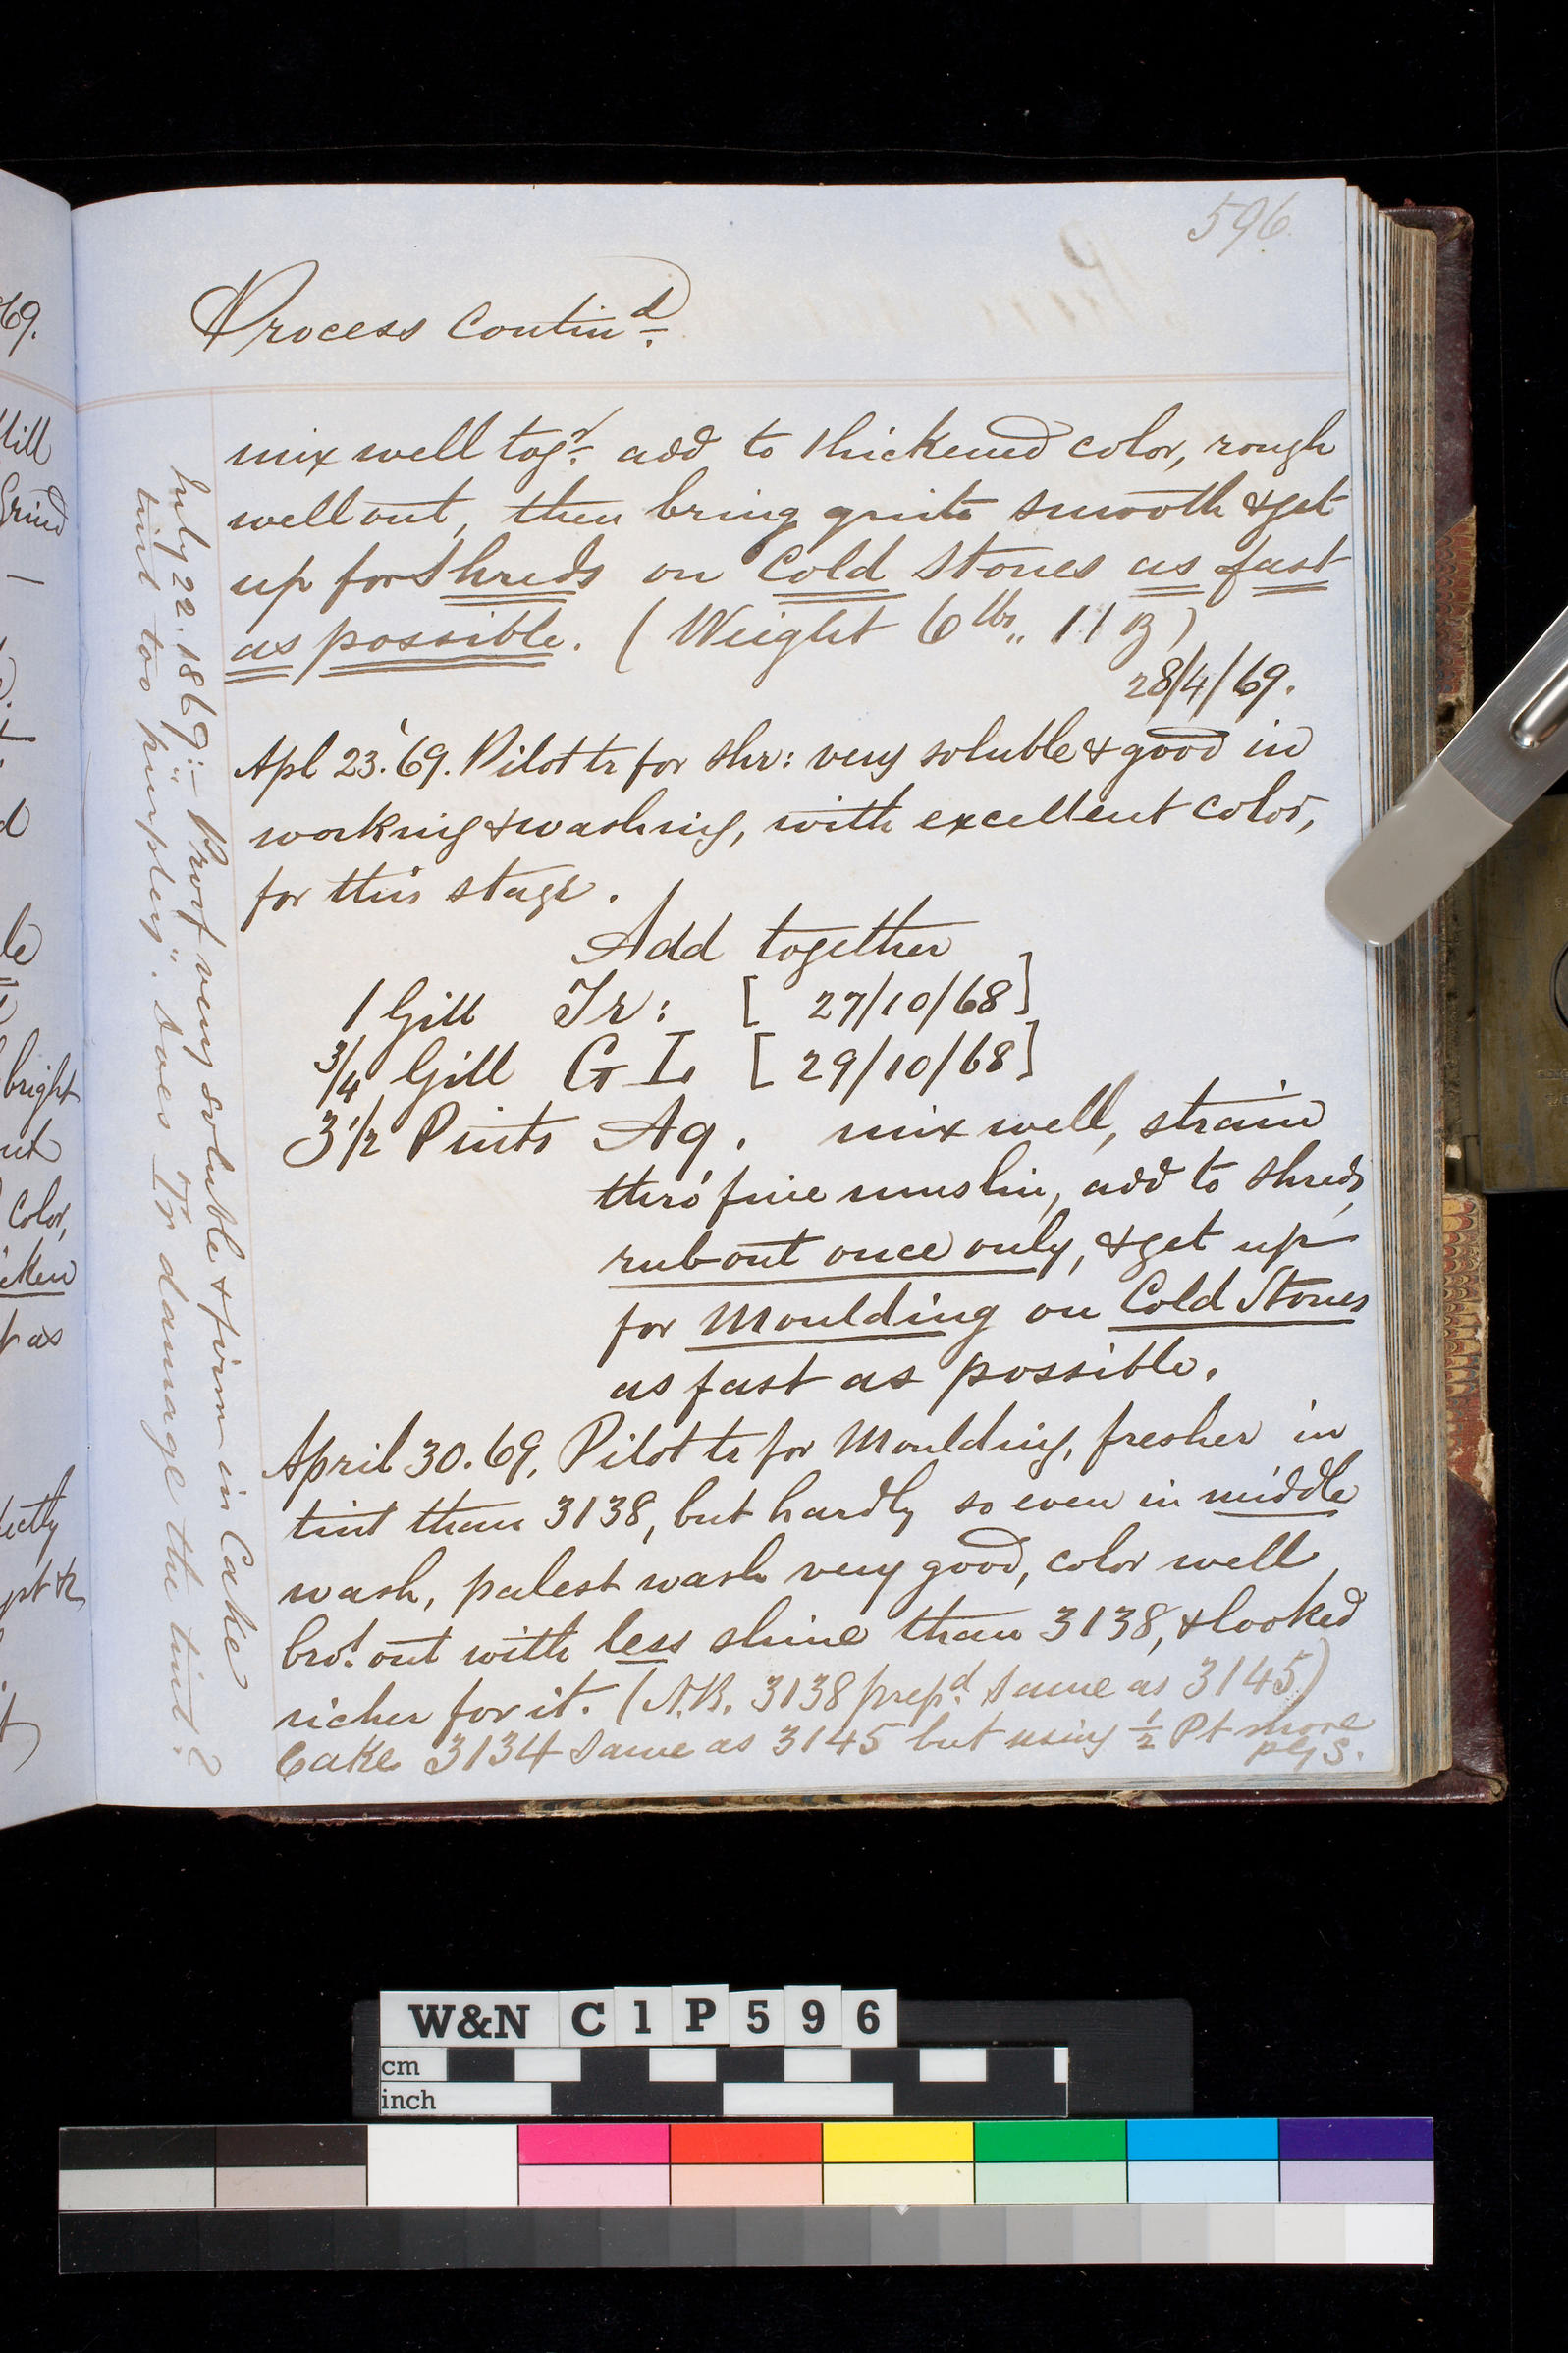 596.
Process Contind.
mix well togr. add to thickened color, rough
well out, then bring quite smooth & get
up for Shreds on Cold Stones as fast
as possible. (Weight 6 lbs,, 11 oz)
28/4/69.
Apl 23.'69. Pilot tr for Shr: very soluble & good in
working & washing, with excellent color,
for this stage.
Add together
1 Gill Tr: [27/10/68]
3/4 Gill G I [29/10/68]
3 1/2 Pints Aq. mix well, strain
thro' fine muslin, add to shreds,
rub out once only, & get up
for Moulding on Cold Stones
as fast as possible.
April 30.69. Pilot tr for Moulding, fresher in
tint than 3138, but hardly so even in middle
wash, palest wash very good, color well
bro.t out with less shine than 3138, & looked
richer for it. (N.B. 3138 prepd. same as 3145)
Cake 3134 same as 3145 but using 1/2 Pt more
July 22.1869:- Proof very soluble & firm in Cake
tint "too purpley". Does Tr damage the tint?
69.
Grind
bright
color,
as
W&N C1P596
cm
inch